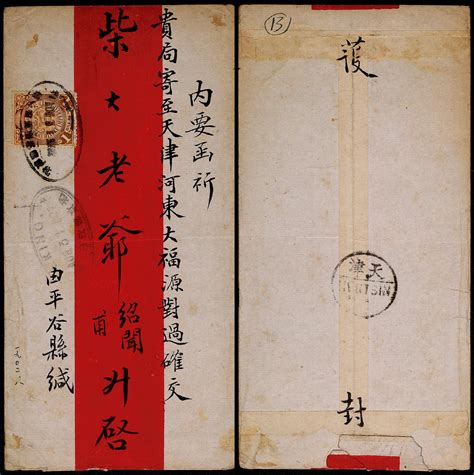 内要函祈
貴局寄至天津河東大福源對過確交
柴大老爺 紹聞 甫 升啓
由平谷縣緘
一九〇二.八
B
護
封
天津
TIENTSIN